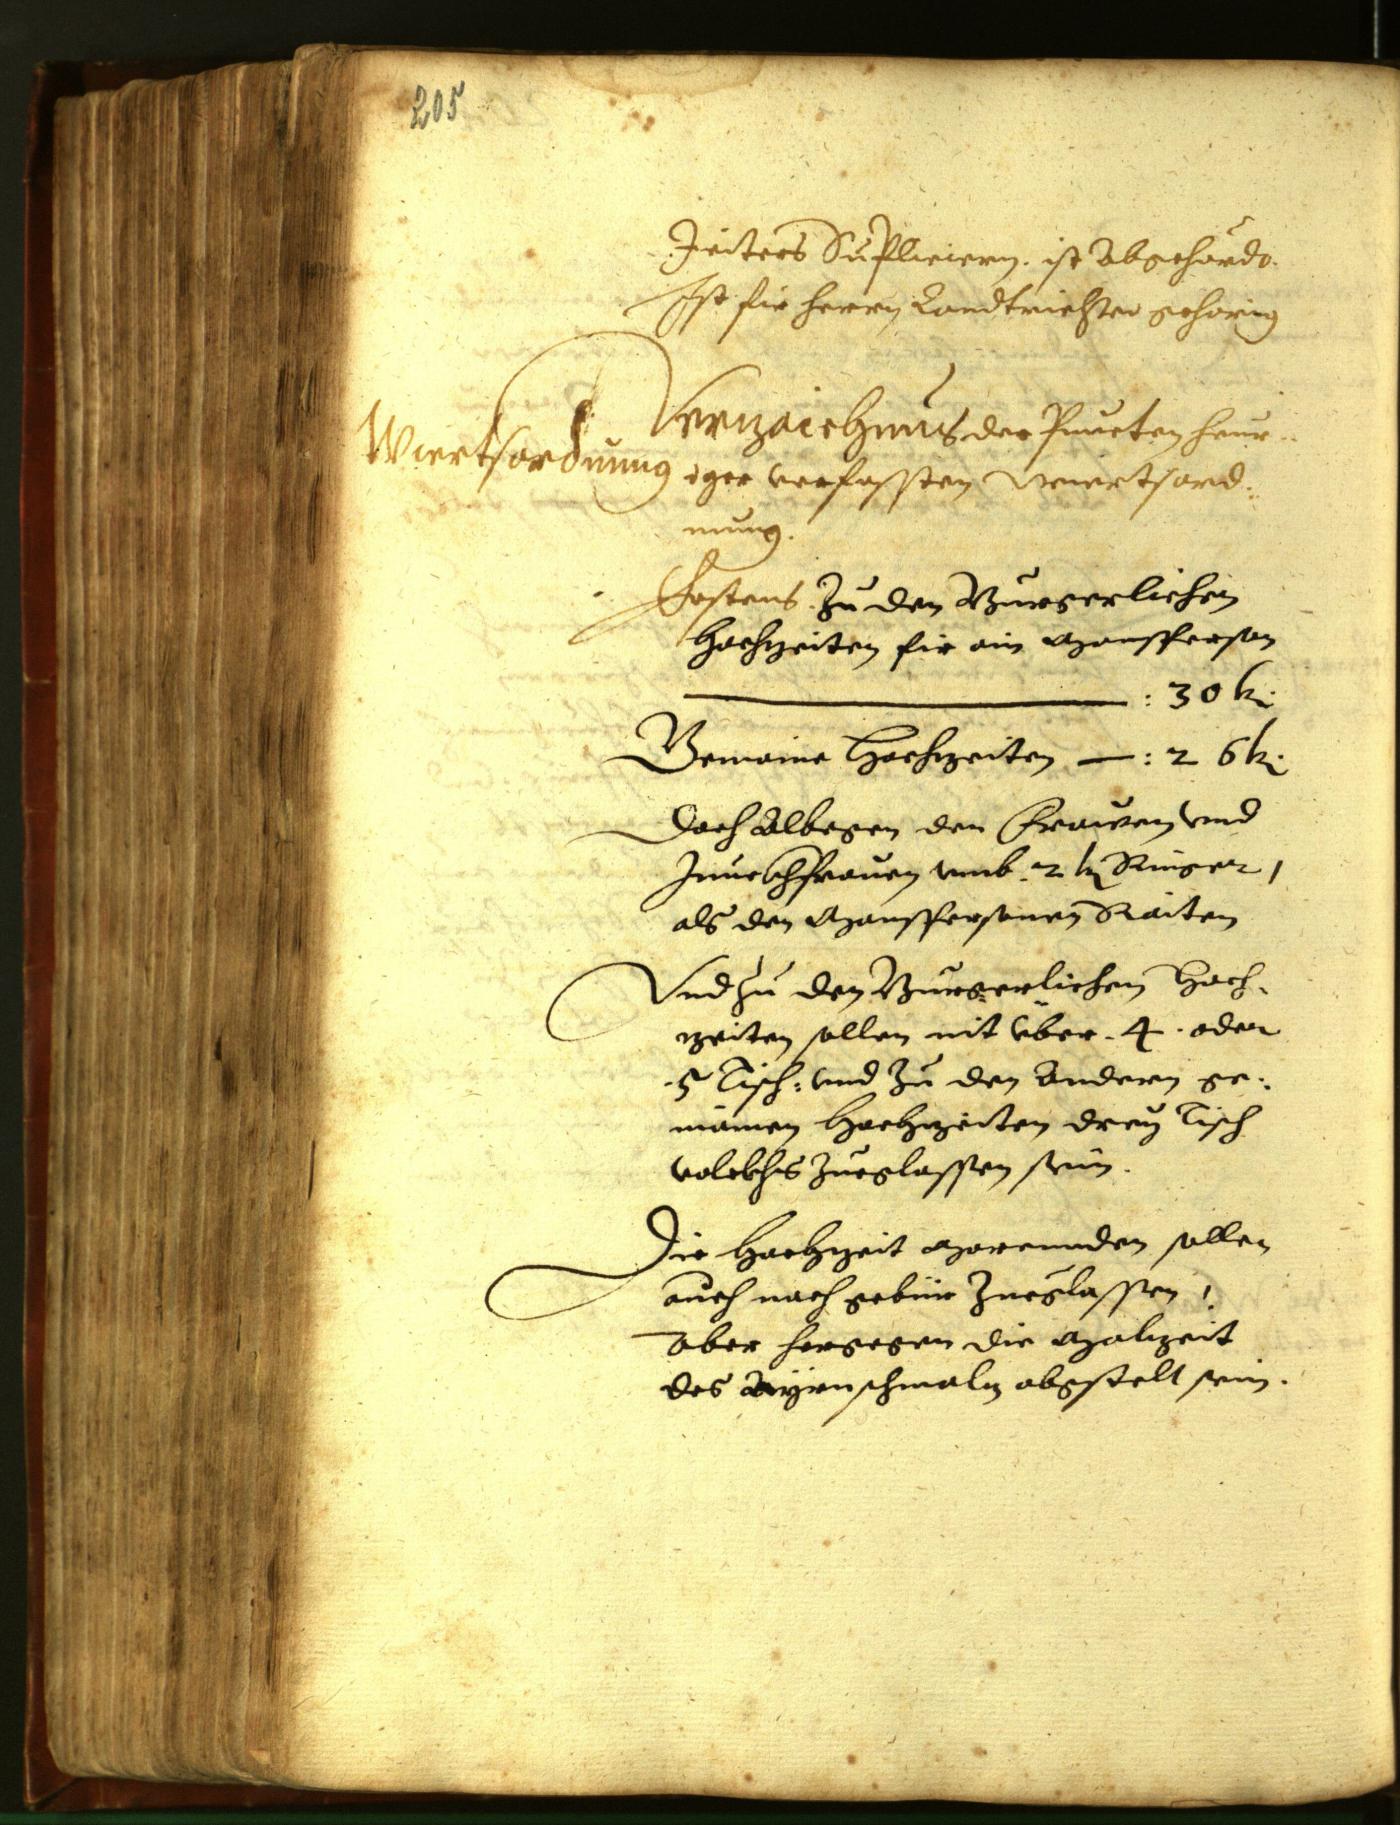 205
Jeiters Supplieiern. ist abgehördt.
Ist für herrn Landtrichter gehörig
Wiertsordnung
Verzaichnus der Puncten heur-
iger verfassten Wiertsord-
nung.
Erstens Zu den Burgerlichen
Hochzeiten für ain Manssperson
: 30 k:
Gemaine Hochzeiten — : 26 k:
Doch albegen den Frawen vnd
Junckhfrauen vmb 2 k Ringer,
als den Mansspersonen Raiten
Vnd Zu den Burgerlichen Hoch-
zeiten sollen nit über . 4 . oder
. 5 Tisch: vnd Zu den Andern ge-
mainen Hochzeiten drey Tisch
volckhs Zuegelassen sein.
Die Hochzeit Morennden sollen
auch nach gebür Zuegelassen,
aber hergegen die Malzeit
des Ayrnschmalz abgestelt sein.